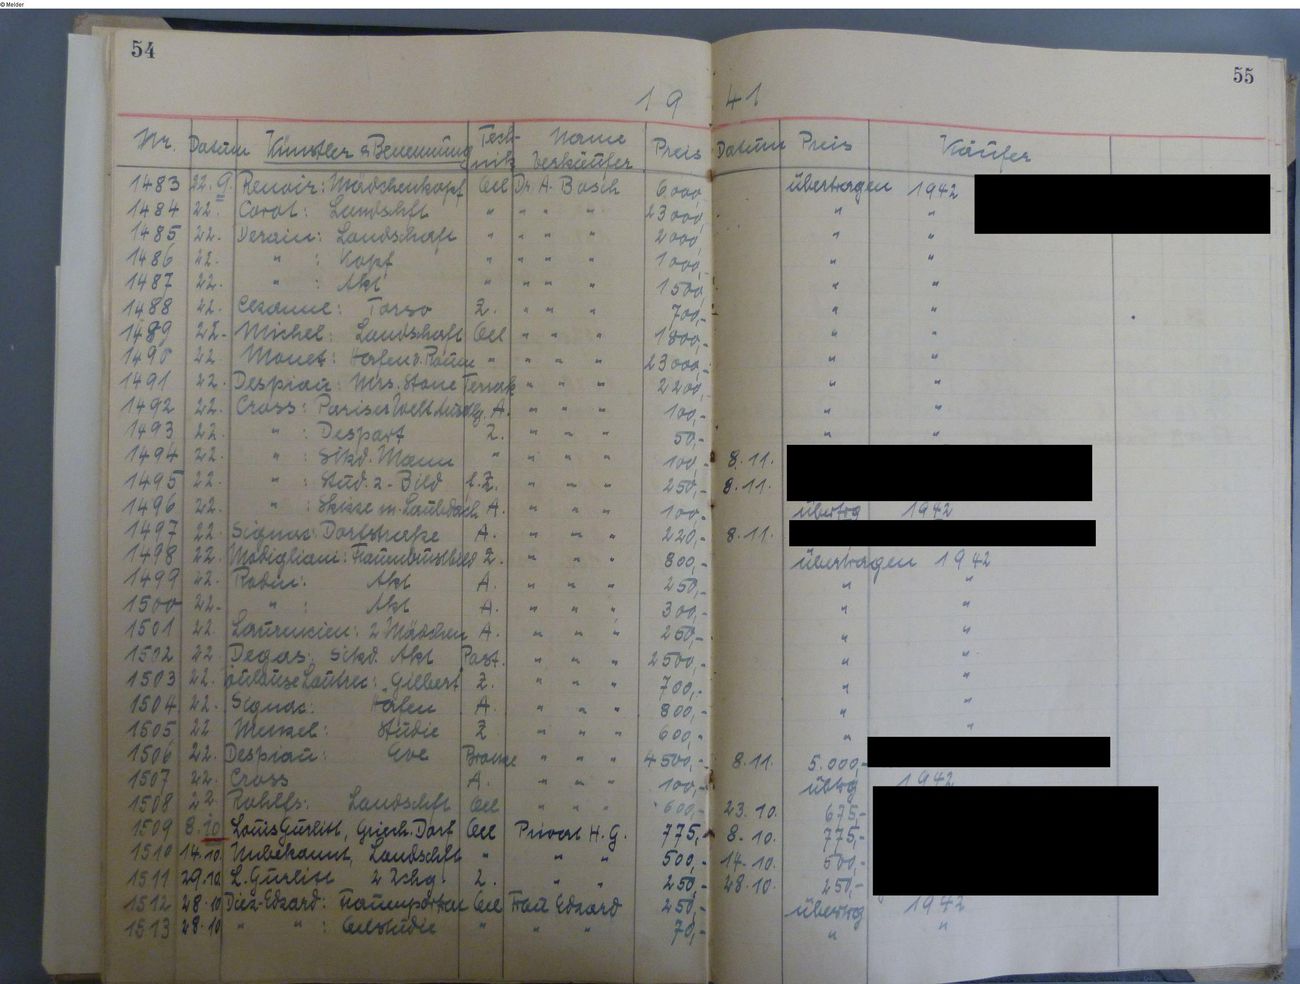 © Meider
54
55
19 41
Nr. Datum Künstler & Benennung Technik Name Verkäufer Preis Datum Preis Käufer
1483 22.9. Renoir: Mädchenkopf Oel Dr. A. Bosch 6000, übertragen 1942
1484 22. Corot: Landschft " " " " 23000, " "
1485 22. Derain: Landschaft " " " " 2000, " "
1486 22. " : Kopf " " " " 1000,- " "
1487 22. " : Akt " " " " 1500, " "
1488 22. Cezanne: Torso Z. " " " 700,- " "
1489 22. Michel: Landschaft Oel " " " 1800,- " "
1490 22. Monet: Hafen v. Rouen " " " " 23000,- " "
1491 22. Despiau: Mrs. Stone Terrak " " " 2200,- " "
1492 22. Cross: Pariser Weltausstlg. A. " " " 100,- " "
1493 22. " : Z. " " " 50,- " "
1494 22. " : Sitzd. Mann " " " " 100,- 8.11.
1495 22. " : Stud. z. Bild f. Z. " " " 250,- 8.11.
1496 22. " : Skizze m. A. " " " 100,- übertrg 1942
1497 22. Signac: Dorfstraße A. " " " 220,- 8.11.
1498 22. Modigliani: Z. " " " 800,- übertragen 1942
1499 22. Rodin: Akt A. " " " 250,- " "
1500 22. " : Akt A. " " " 300,- " "
1501 22. Laurencien: 2 Mädchen A. " " " 250,- " "
1502 22. Degas: Sitzd. Akt Past. " " " 2500,- " "
1503 22. Toulouse Lautrec: "Gilbert" Z. " " " 700,- " "
1504 22. Signac: Hafen A. " " " 800,- " "
1505 22 Menzel: Studie Z. " " " 600,- "
1506 22. Despiau: Eve Bronze " " " 4500,- 8.11. 5.000,-
1507 22. Cross A. " " " 100,- übtrg 1942
1508 22. Rohlfs: Landschft Oel " " " 600,- 23.10. 675,-
1509 8.10 Louis Gurlitt, Griech. Dorf Oel Privat H. G. 775,- 8.10. 775,-
1510 14.10. Unbekannt, Landschft " " " 500,- 14.10. 500,-
1511 29.10. L. Gurlitt 2 Zchg. Z. " " 250,- 28.10. 250,-
1512 28.10 Diez-Edzard: Frauenportrait Oel Frau Edzard 250,- übertrg 1942
1513 28.10 " " : Oelstudie " " " 70,- " "